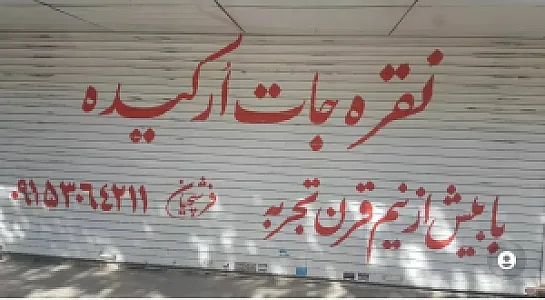 نقره جات اُرکیده
با بیش از نیم قرن تجربه
فرشچیان
۰۹۱۵۳۰۶۴۲۱۱